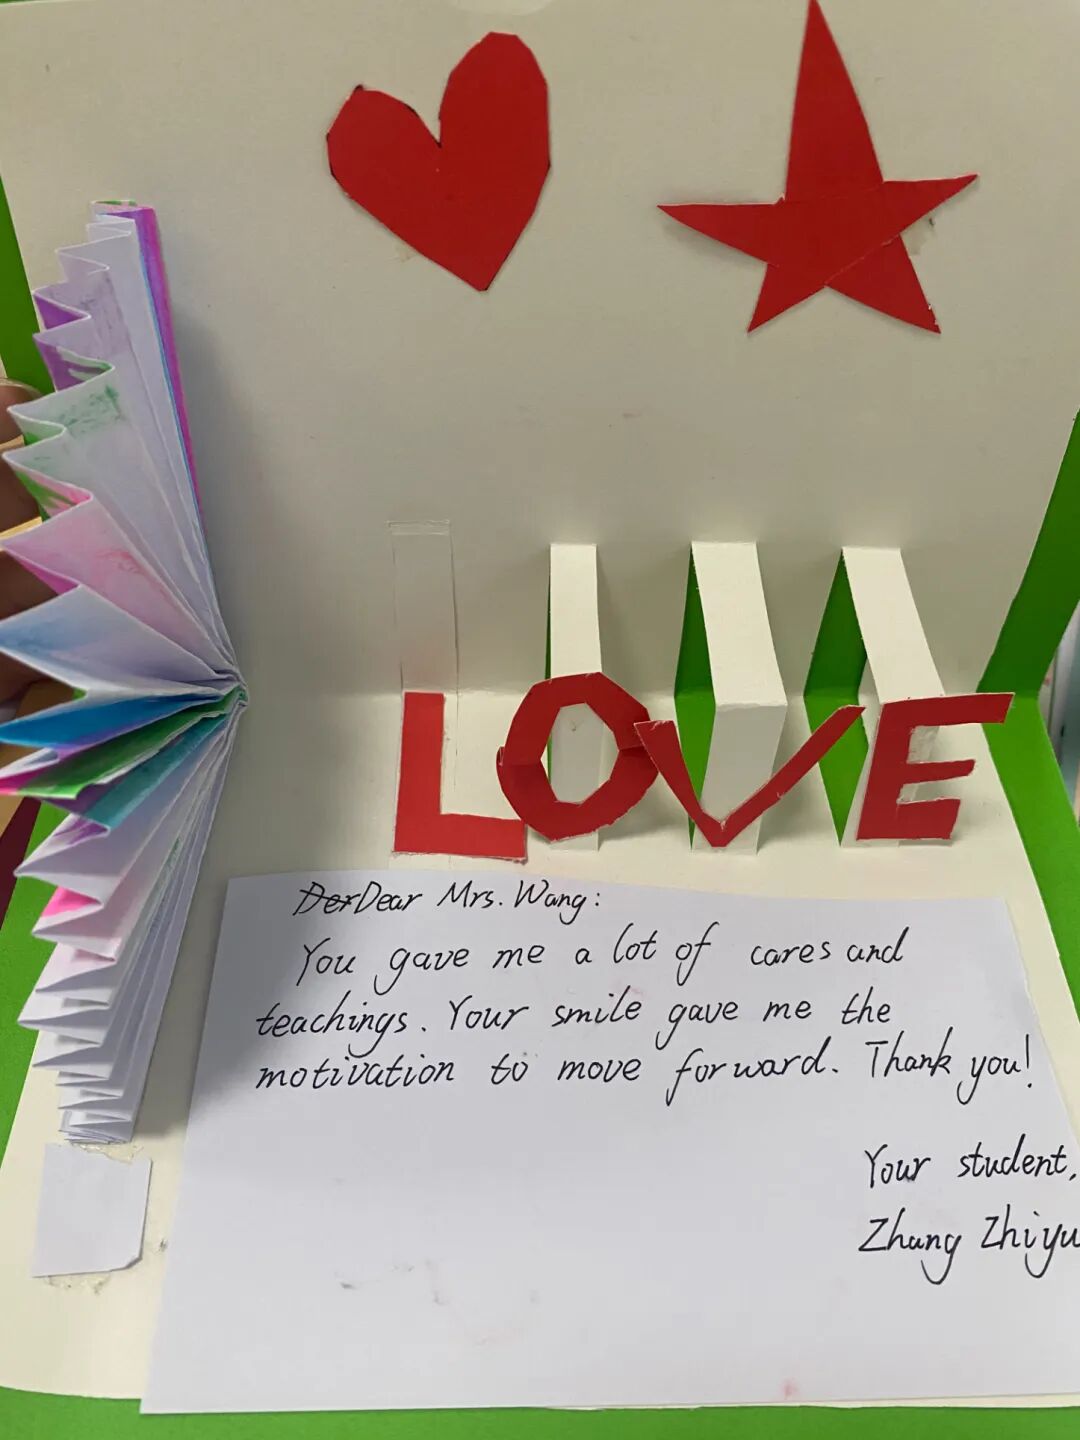 LOVE
Dear Mrs. Wang:
You gave me a lot of cares and
teachings. Your smile gave me the
motivation to move forward. Thank you!
Your student,
Zhang Zhiyu